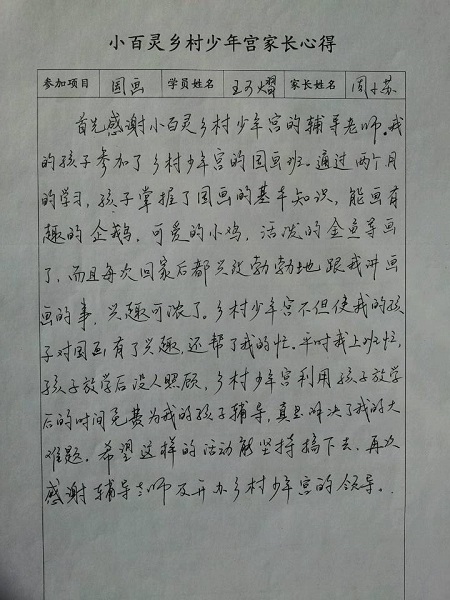 小百灵乡村少年宫家长心得
参加项目 国画 学员姓名 王子熠 家长姓名 周小苏
首先感谢小百灵乡村少年宫的辅导老师。我
的孩子参加了乡村少年宫的国画班。通过两个月
的学习,孩子掌握了国画的基本知识,能画有
趣的企鹅,可爱的小鸡,活泼的金鱼等画
了,而且每次回家后都兴致勃勃地跟我讲画
画的事,兴趣可浓了。乡村少年宫不但使我的孩
子对国画有了兴趣,还帮了我的忙。平时我上班忙,
孩子放学后没人照顾,乡村少年宫利用孩子放学
后的时间免费为我的孩子辅导,真是解决了我的大
难题。希望这样的活动能坚持搞下去,再次
感谢辅导老师及开办乡村少年宫的领导。